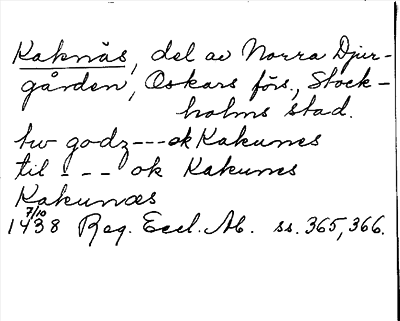 Kaknäs, del av Norra Djur-
gården, Oskars förs., Stock-
holms stad.
tw godz --- ok Kakunes
til - - - ok Kakunes
Kakunæs
7/10
1438 Reg. Eccl. Ab. ss. 365, 366.